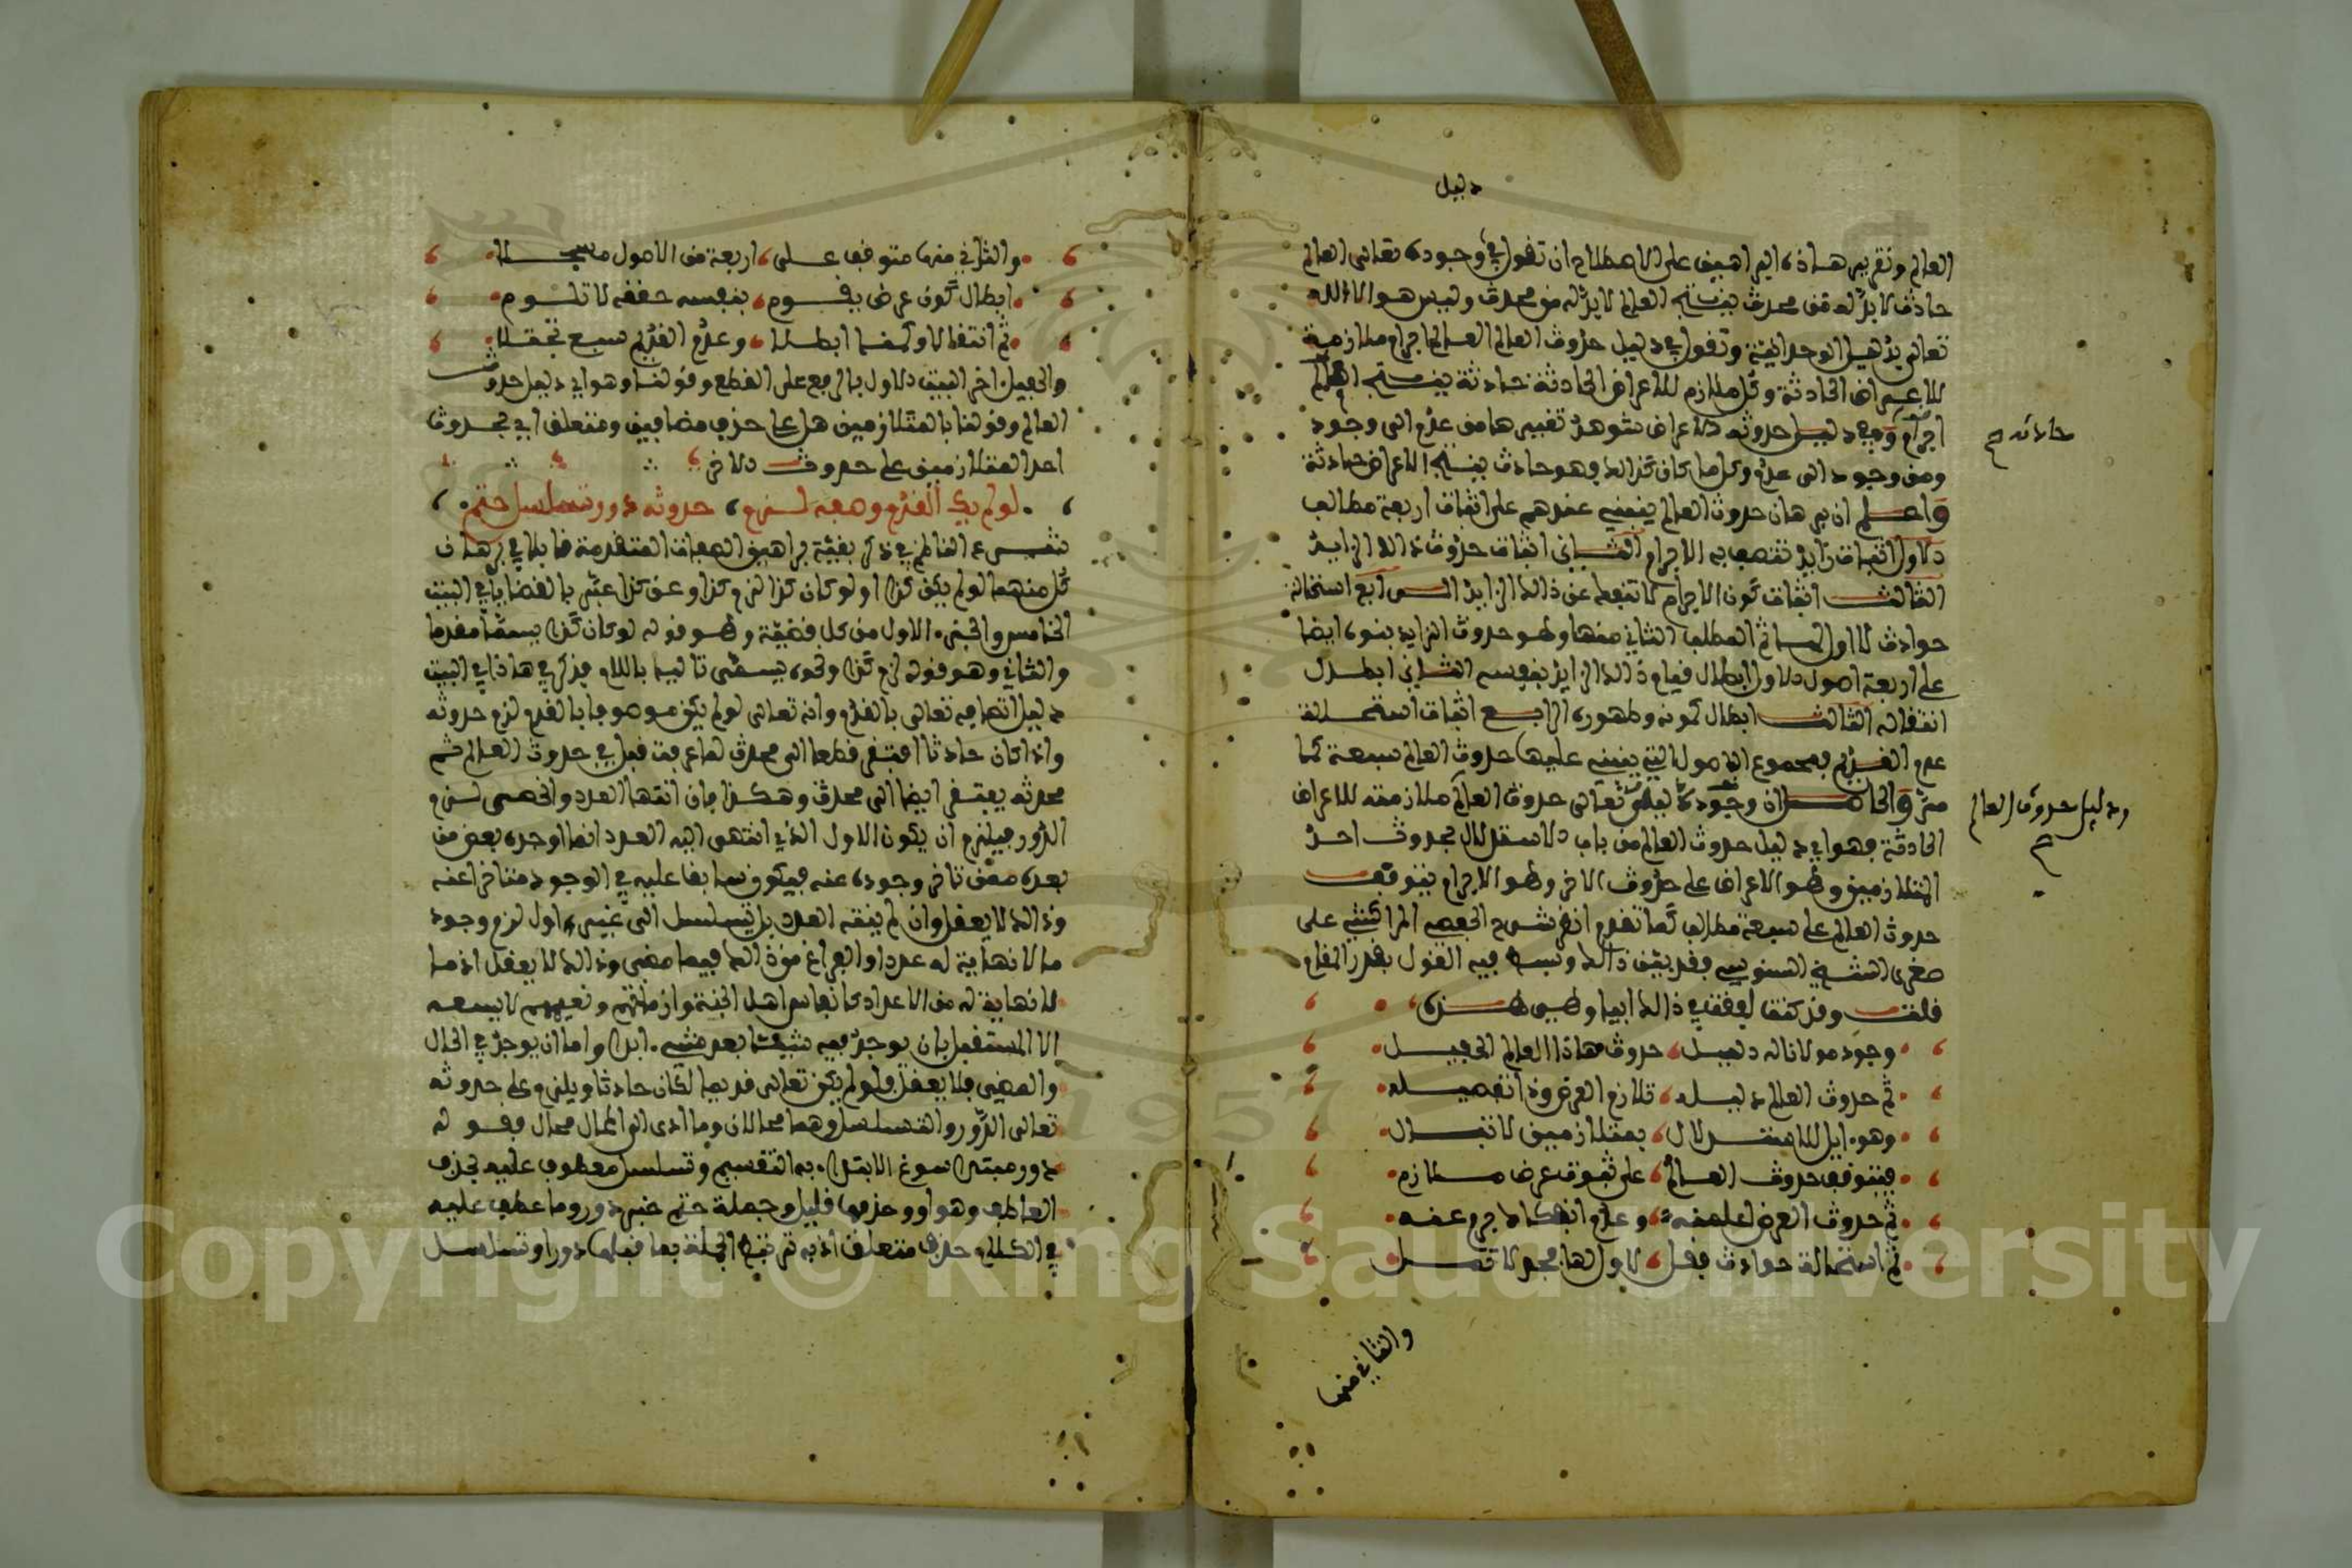 دليل
العالم وتقرير هذه البراهين على الاصطلاح ان تقول في وجوده تعالى العالم
حادث لا بد له من محدث ينتج العالم لا بد له من محدث وليس هو الا الله
تعالى بدليل الوحدانية وتقول في دليل حدوث العالم العالم اجرام ملازمة
للاعراض الحادثة وكل ملازم للاعراض الحادثة حادثة ينتج العالم
اجرام وفي دليل حدوثه الاعراض شوهد تغييرها من عدم الى وجود
حادثه صح
ومن وجود الى عدم وكل ما كان كذالك فهو حادث ينتج الاعراض حادثة
واعلم ان برهان حدوث العالم ينبني عندهم على اثبات اربعة مطالب
الاول اثبات زايد تتصف به الاجرام الثاني اثبات حدوث ذالك الزايد
الثالث اثبات كون الاجرام لا تنفك عن ذالك الزايد الرابع استحالة
حوادث لا اول لها ثم المطلب الثاني منها وهو حدوث الزايد ينبني ايضا
على اربعة اصول الاول ابطال قيام ذالك الزايد بنفسه الثاني ابطال
انتقاله الثالث ابطال كمونه وظهوره الرابع اثبات استحالة
عدم القديم فمجموع الاصول التي ينبني عليها حدوث العالم سبعة كما
مر والحاصل ان وجوده تعالى حدوث العالم ملازمته للاعراض
ودليل حدوث العالم صح
الحادثة فهو اي دليل حدوث العالم من باب الاستدلال بحدوث احد
المتلازمين وهو الاعراض على حدوث الاخر وهو الاجرام يتوقف
حدوث العالم على سبعة مطالب كما تقدم انظر شرح الحفصي المراكشي على
صغرى الشيخ السنوسي فقد بين ذالك وبسط فيه القول بقدر المقام
قلت وقد كنت لفقت في ذالك ابياتا وهي هذه
وجود مولانا له دليل حدوث هاذا العالم الحفيل
ثم حدوث العالم دليله تلازم العرض وذا تفصيله
وهو ايل للاستدلال بمتلازمين لا تبال
فيتوقف حدوث العالم على ثبوت عرض ملازم
ثم حدوث العرض اعلمنه وعدم انفكاك جرم عنه
ثم استحالة حوادث فقل لا اول لها فجد لا تمل
والثاني منها
والثاني منها متوقف على اربعة من الاصول مسجلا
ابطال كون عرض يقوم بنفسه حققه لا تلوم
ثم انتقالا وكمنا ابطلا وعدم القديم سبع تجتلا
والحفيل اخر البيت الاول بالرفع على القطع وقولنا وهو اي دليل حدوث
العالم وقولنا بالمتلازمين هل على حذف مضافين ومتعلق اي بحدوث
احد المتلازمين على حدوث الاخر
لو لم يك القدم وصفه لزم حدوثه دور تسلسل حتم
شرع الناظم في ذكر بقية براهين الصفات المتقدمة قايلا في برهان
كل منهما لو لم يكن كذا او لو كان كذا لزم كذا وعن كذا عبر بالقضايا في البيت
الخامس والجزء الاول من كل قضية وهو قوله لو كان كذا يسمى مقدما
والثاني وهو قوله لزم كذا ونحوه يسمى تاليا باللام فذكر في هاذا البيت
دليل اتصافه تعالى بالقدم وانه تعالى لو لم يكن موصوفا بالقدم لزم حدوثه
واذا كان حادثا افتقر قطعا الى محدث لما عرفت قبل في حدوث العالم ثم
محدثه يفتقر ايضا الى محدث وهكذا فان انتها العدد وانحصر لزم
الدور فيلزم ان يكون الاول الذي انتهى اليه العدد انما اوجده بعض من
بعده ممن تاخر وجوده عنه فيكون سابقا عليه في الوجود متاخرا عنه
وذالك لا يعقل وان لم ينته العدد بل تسلسل الى غير اول لزم وجود
ما لا نهاية له عددا والفراغ من ذالك فيما مضى وذالك لا يعقل اذ ما
لا نهاية له من الاعداد كانفاس اهل الجنة وازمانهم ونعيمهم لا يسعه
الا المستقبل بان يوجد فيه شيئا بعد شيء ابدا واما ان يوجد في الحال
والمضي فلا يعقل فلو لم يكن تعالى قديما لكان حادثا ويلزم على حدوثه
تعالى الدور والتسلسل وهما محالان وما ادى الى المحال محال فقوله
دور مبتدا سوغ الابتداء به التقسيم وتسلسل معطوف عليه بحذف
العاطف وهو او وحذفها قليل وجملة حتم خبر دور وما عطف عليه
في الكلام حذف متعلق اذ به ترتبط الجملة بما قبلها دور او تسلسل